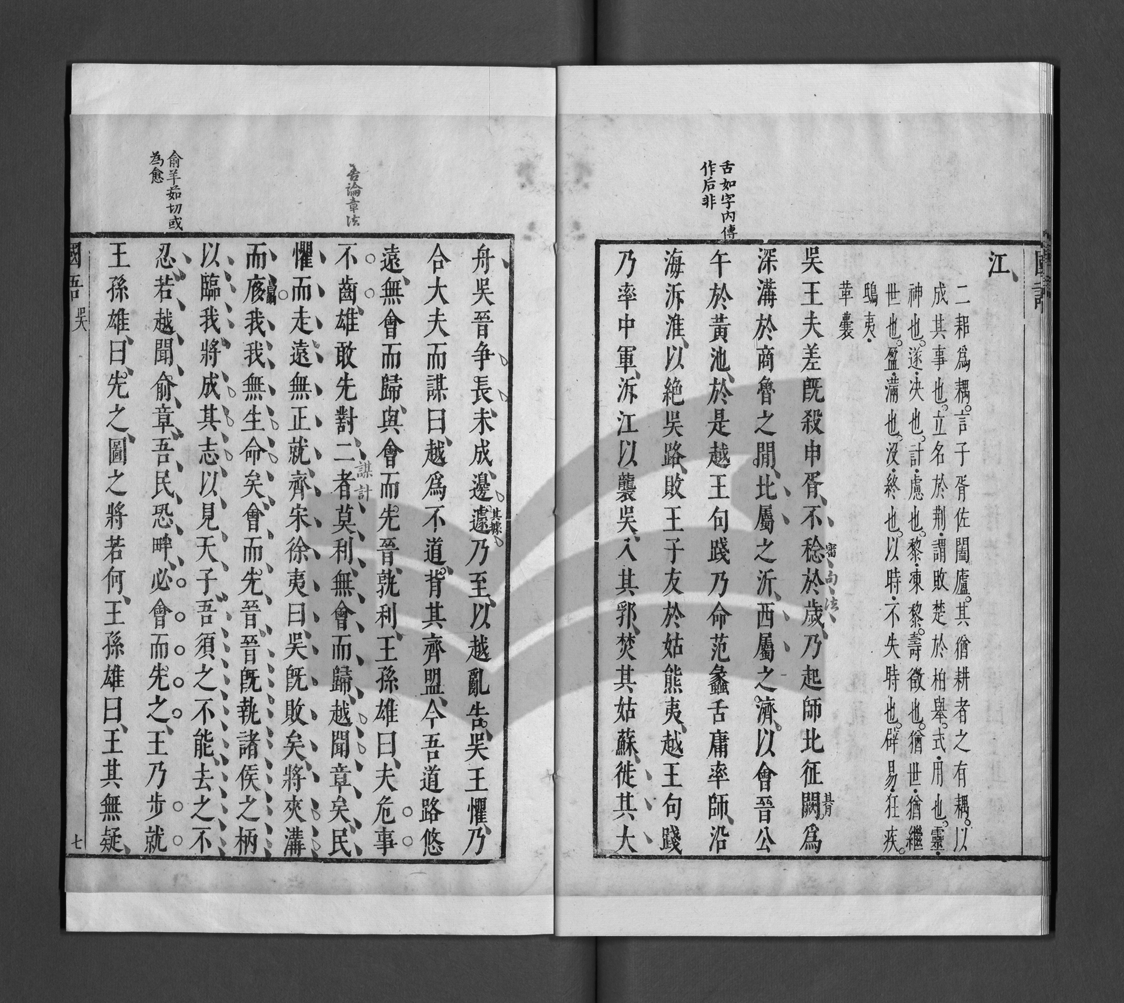 國語
江
二耜爲耦。言子胥佐闔廬。其猶耕者之有耦。以
成其事也。立名於荆。謂敗楚於柏舉。式。用也。靈。
神也。遂。決也。計。慮也。黎。凍黎。壽徵也。猶世。猶繼
世也。盈。滿也。沒。終也。以時。不失時也。辟易。狂疾。
鴟夷。
革囊
吳王夫差旣殺申胥不稔於歲乃起師北征闕爲
深溝於商魯之閒北屬之沂西屬之濟以會晉公
午於黃池於是越王句踐乃命范蠡舌庸率師沿
海泝淮以絕吳路敗王子友於姑熊夷越王句踐
乃率中軍泝江以襲吳入其郛焚其姑蘇徙其大
舌如字內傳
作后非
舟吳晉爭長未成邊遽乃至以越亂告吳王懼乃
合大夫而謀曰越爲不道背其齊盟今吾道路悠
遠無會而歸與會而先晉孰利王孫雄曰夫危事
不齒雄敢先對二者莫利無會而歸越聞章矣民
懼而走遠無正就齊宋徐夷曰吳旣敗矣將夾溝
而㢋我我無生命矣會而先晉晉旣執諸侯之柄
以臨我將成其志以見天子吾須之不能去之不
忍若越聞俞章吾民恐畔必會而先之王乃步就
王孫雄曰先之圖之將若何王孫雄曰王其無疑
告論章法
謀計
俞羊茹切或
為愈
國語 吳 七